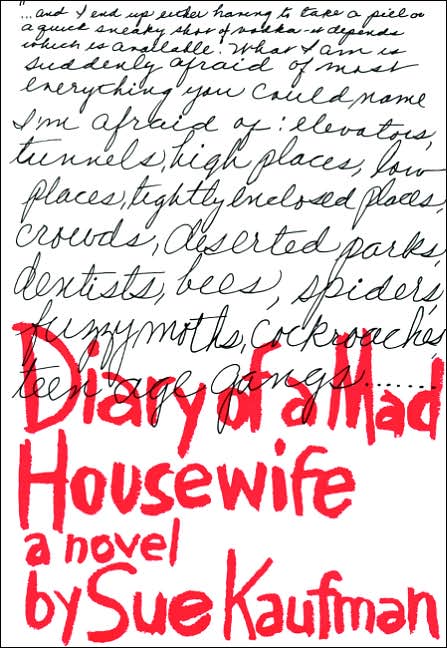 "...and I end up either having to take a pill or
a quick sneaky shot of vodka—it depends
which is available. What I am is
suddenly afraid of most
everything you could name
I'm afraid of: elevators,
tunnels, high places, low
places, tightly enclosed places,
crowds, deserted parks,
dentists, bees, spiders,
fuzzy moths, cockroaches,
teen age gangs.......
Diary of a Mad
Housewife
a novel
by Sue Kaufman